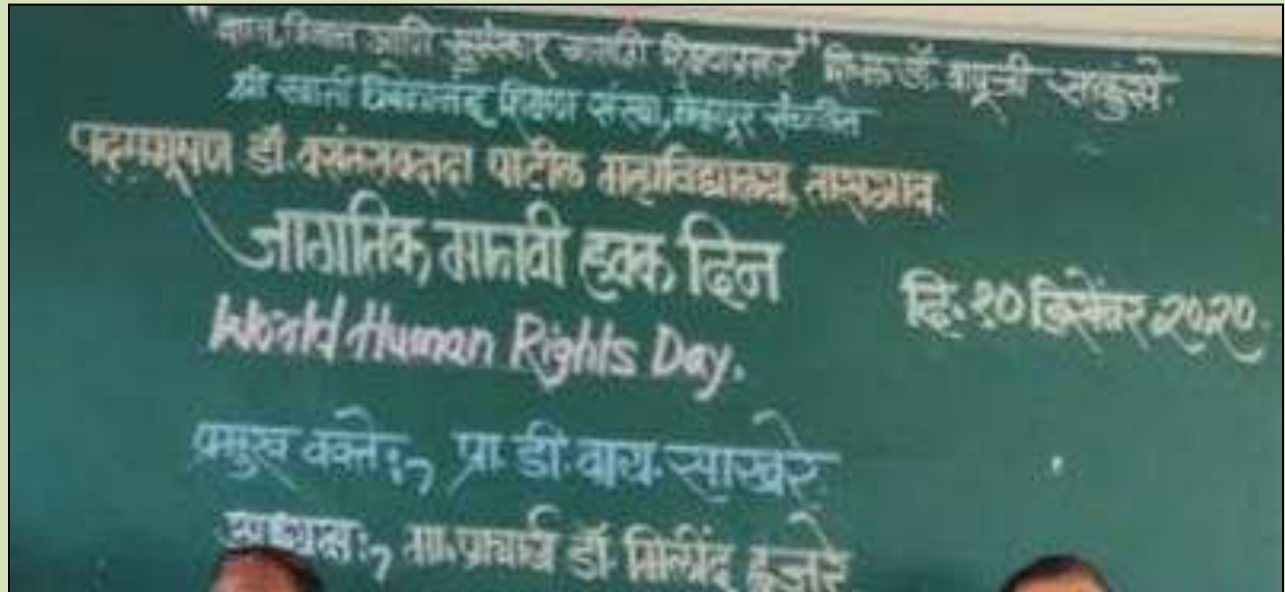 "ज्ञान, विज्ञान आणि सुसंस्कार यासाठी शिक्षणप्रसार" शिक्षणमहर्षी डॉ. बापूजी साळुंखे.
श्री स्वामी विवेकानंद शिक्षण संस्था, कोल्हापूर संचलित
पद्मभूषण डॉ. वसंतरावदादा पाटील महाविद्यालय, तासगाव.
जागतिक मानवी हक्क दिन
दि. १० डिसेंबर २०२०.
World Human Rights Day.
प्रमुख वक्ते:- प्रा. डी. वाय. साखरे.
अध्यक्ष:- मा. प्राचार्य डॉ. मिलिंद हुजरे